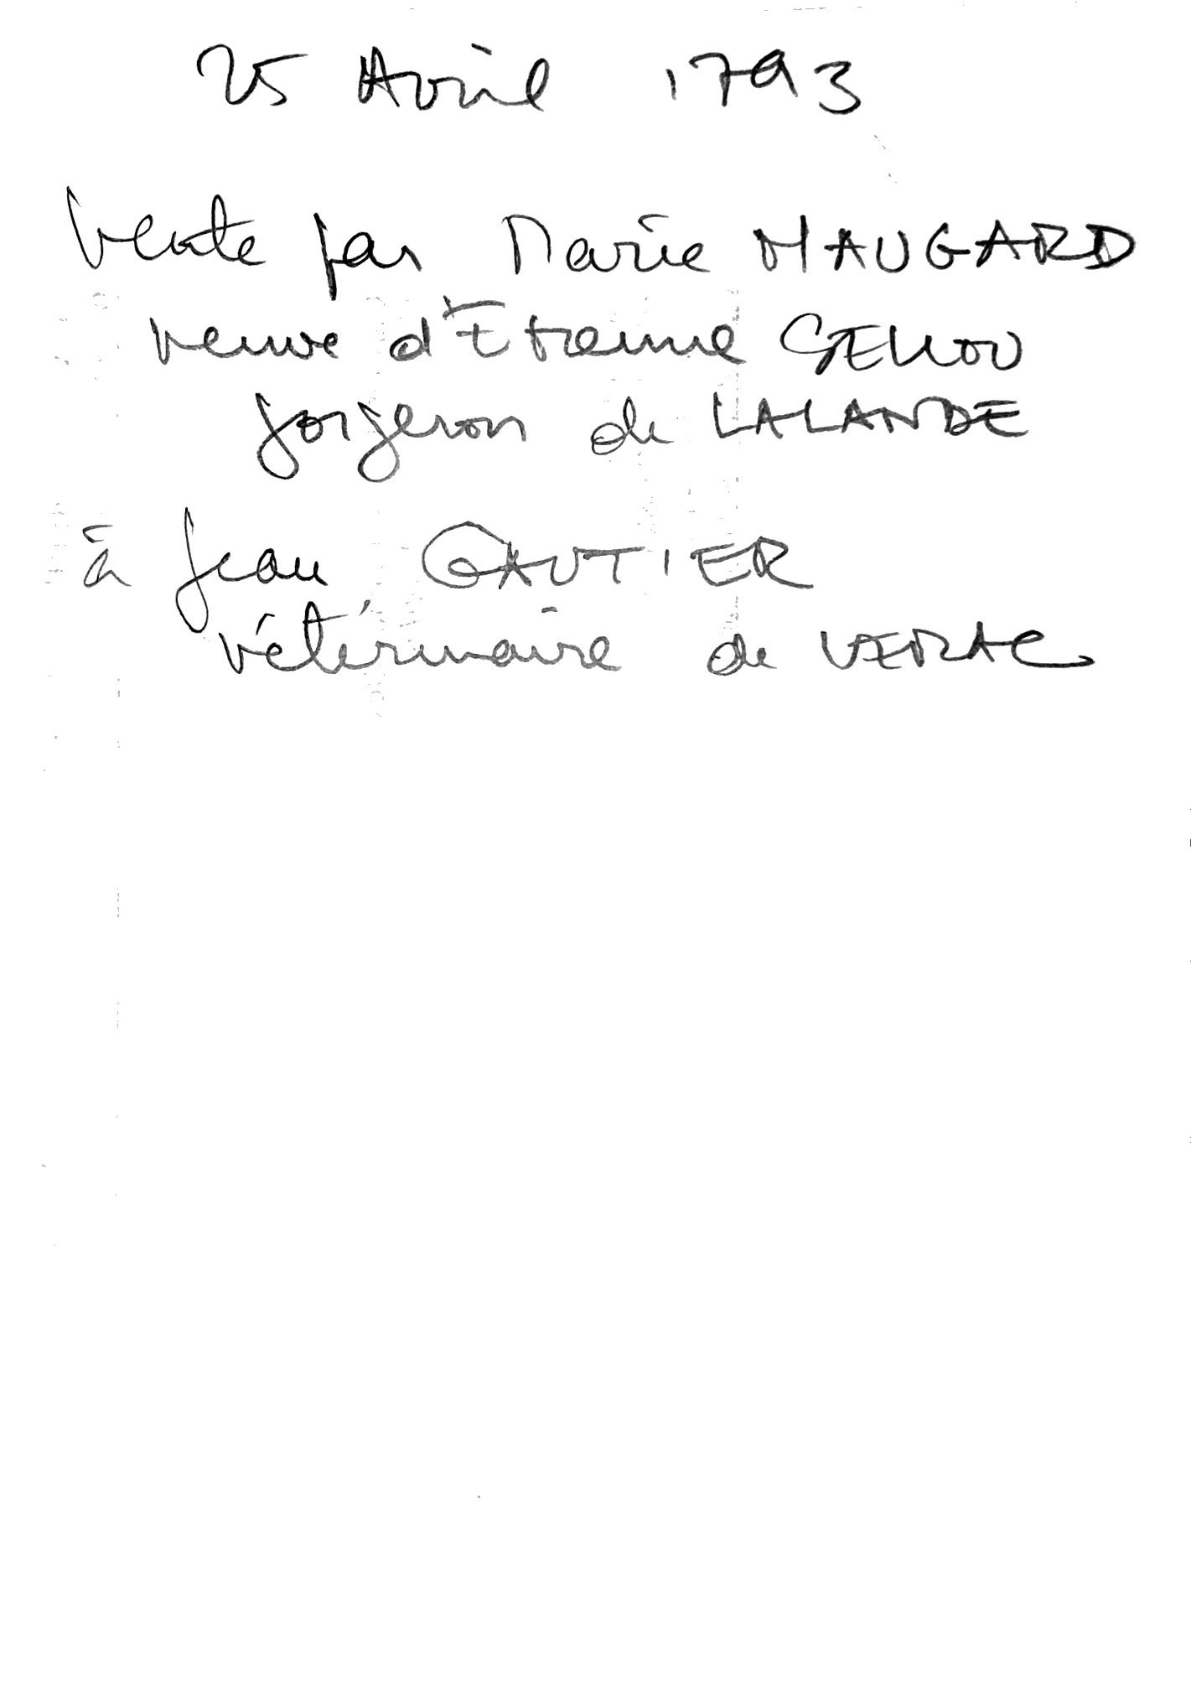 25 Avril 1793
Vente par Marie MAUGARD
veuve d'Étienne
forgeron de LALANDE
à Jean GAUTIER
vétérinaire de VERAC